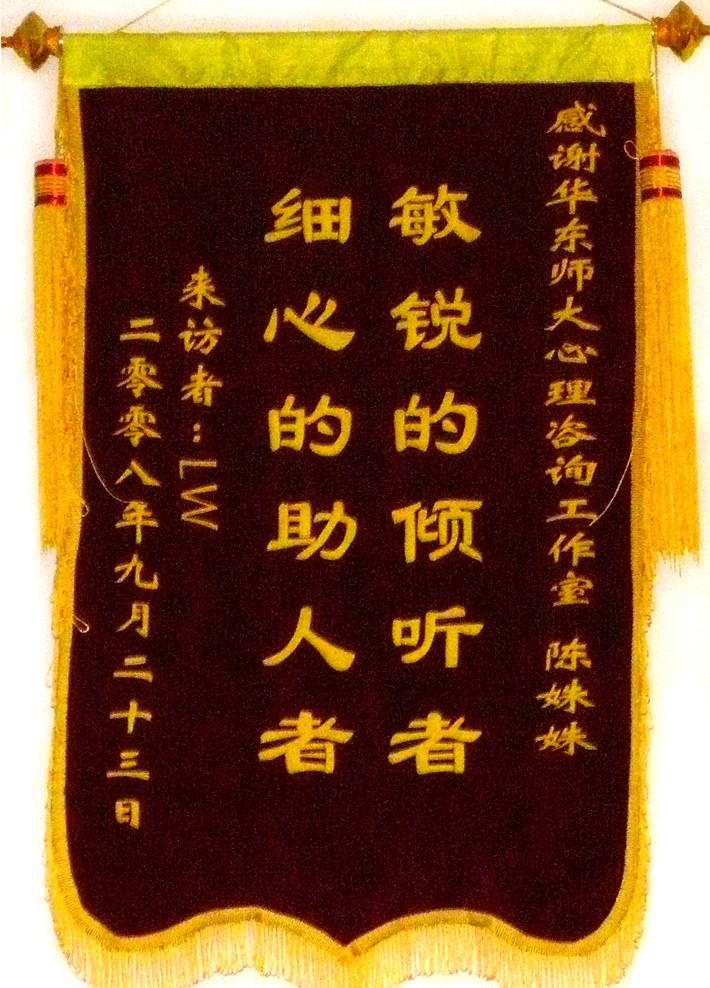 感谢华东师大心理咨询工作室 陈姝姝
敏锐的倾听者
细心的助人者
来访者：LW
二零零八年九月二十三日